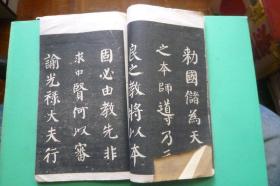 勅國儲為天
之本師導乃
良之教將以本
固必由教先非
求中賢何以審
諭光祿大夫行